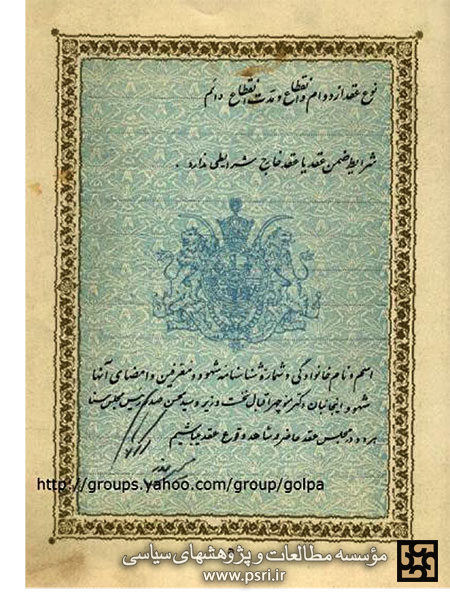 نوع عقد از دوام و انقطاع و مدت انقطاع دائم
شرایط ضمن عقد یا عقد خارج شرایطی ندارد.
اسم و نام خانوادگی و شماره شناسنامه شهود و معرفین و امضای آنها
شهود اینجانبان دکتر منوچهر اقبال نخست وزیر و سید محسن صدر رئیس مجلس سنا
هر دو در مجلس عقد حاضر و شاهد وقوع عقد میباشیم
http://groups.yahoo.com/group/golpa
مؤسسه مطالعات و پژوهشهای سیاسی
www.psri.ir